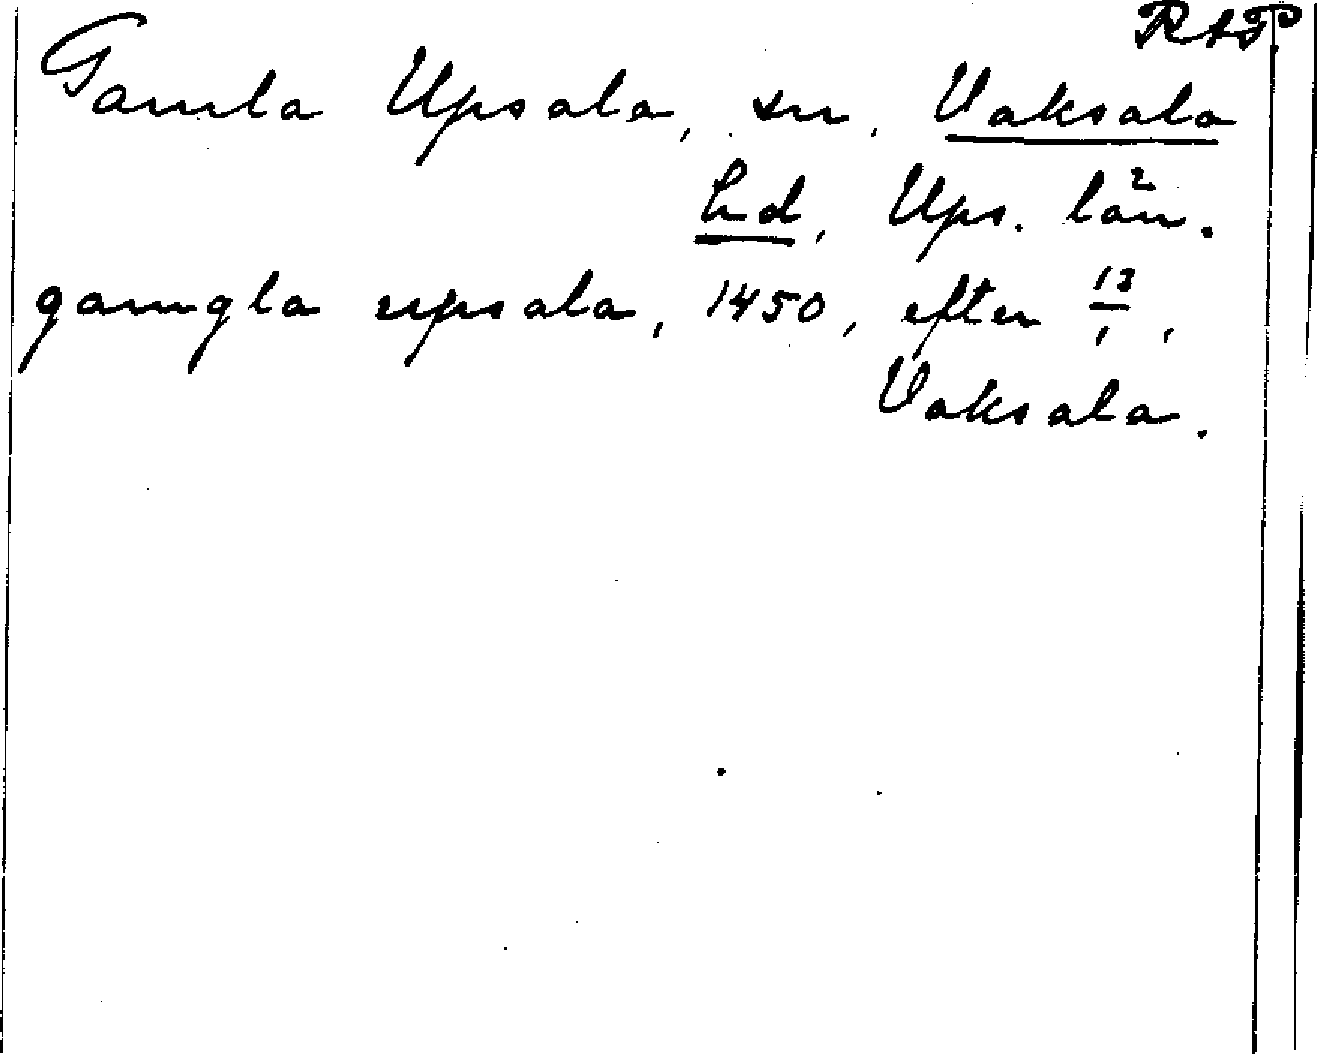 RAP.
Gamla Upsala, sn, Vaksala
hd, Ups. län.
gamgla upsala, 1450, efter 13/1,
Vaksala.